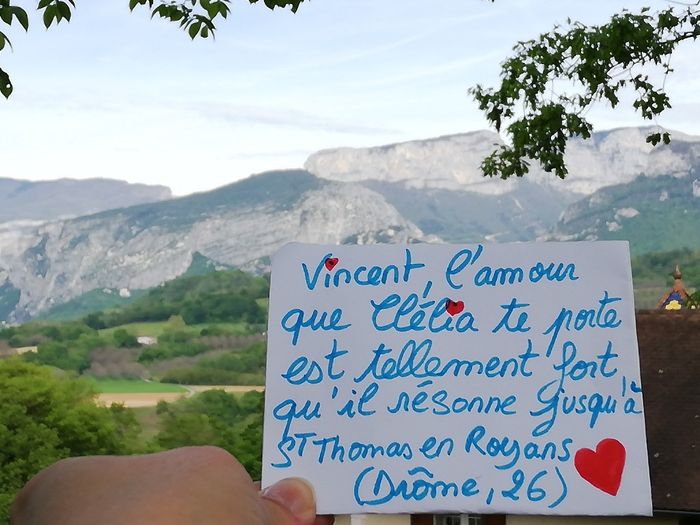 Vincent, l'amour
que Clélia te porte
est tellement fort,
qu'il résonne jusqu'à
ST Thomas en Royans
(Drôme, 26)